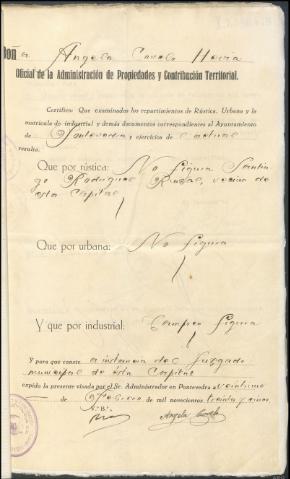 Don Angela
Oficial de la Administración de Propiedades y Contribución Territorial.
Certifico: Que examinados los repartimientos de Rústica, Urbana y la
matrícula de industrial y demás documentos correspondientes al Ayuntamiento
de Pontevedra y ejercicio de actual
resulta:
Que por rústica: No figura Santia
go Rodriguez vecino de
esta Capital
Que por urbana: No figura
Y que por industrial: Tampoco figura
Y para que conste a instancia del Juzgado
municipal de esta Capital
expido la presente visada por el Sr. Administrador en Pontevedra
de Febrero de mil novecientos treinta y cinco
V.º B.º
Angela